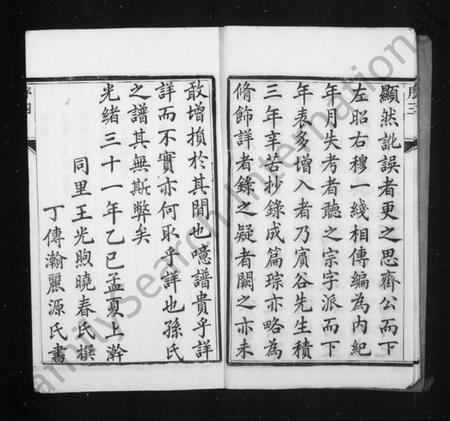 顯然訛誤者更之思齊公而下
左昭右穆一綫相傳編為内紀
年月失考者聽之宗字派而下
年表多增入者乃賓谷先生積
三年辛苦抄錄成篇琮亦略為
脩飾詳者錄之疑者闕之亦未
敢增損於其間也噫譜貴乎詳
詳而不實亦何取乎詳也孫氏
之譜其無斯弊矣
光緒三十一年乙巳孟夏上澣
同里王光煦曉春氏撰
丁傳瀚麗源氏書
序三
序四
FamilySearch International